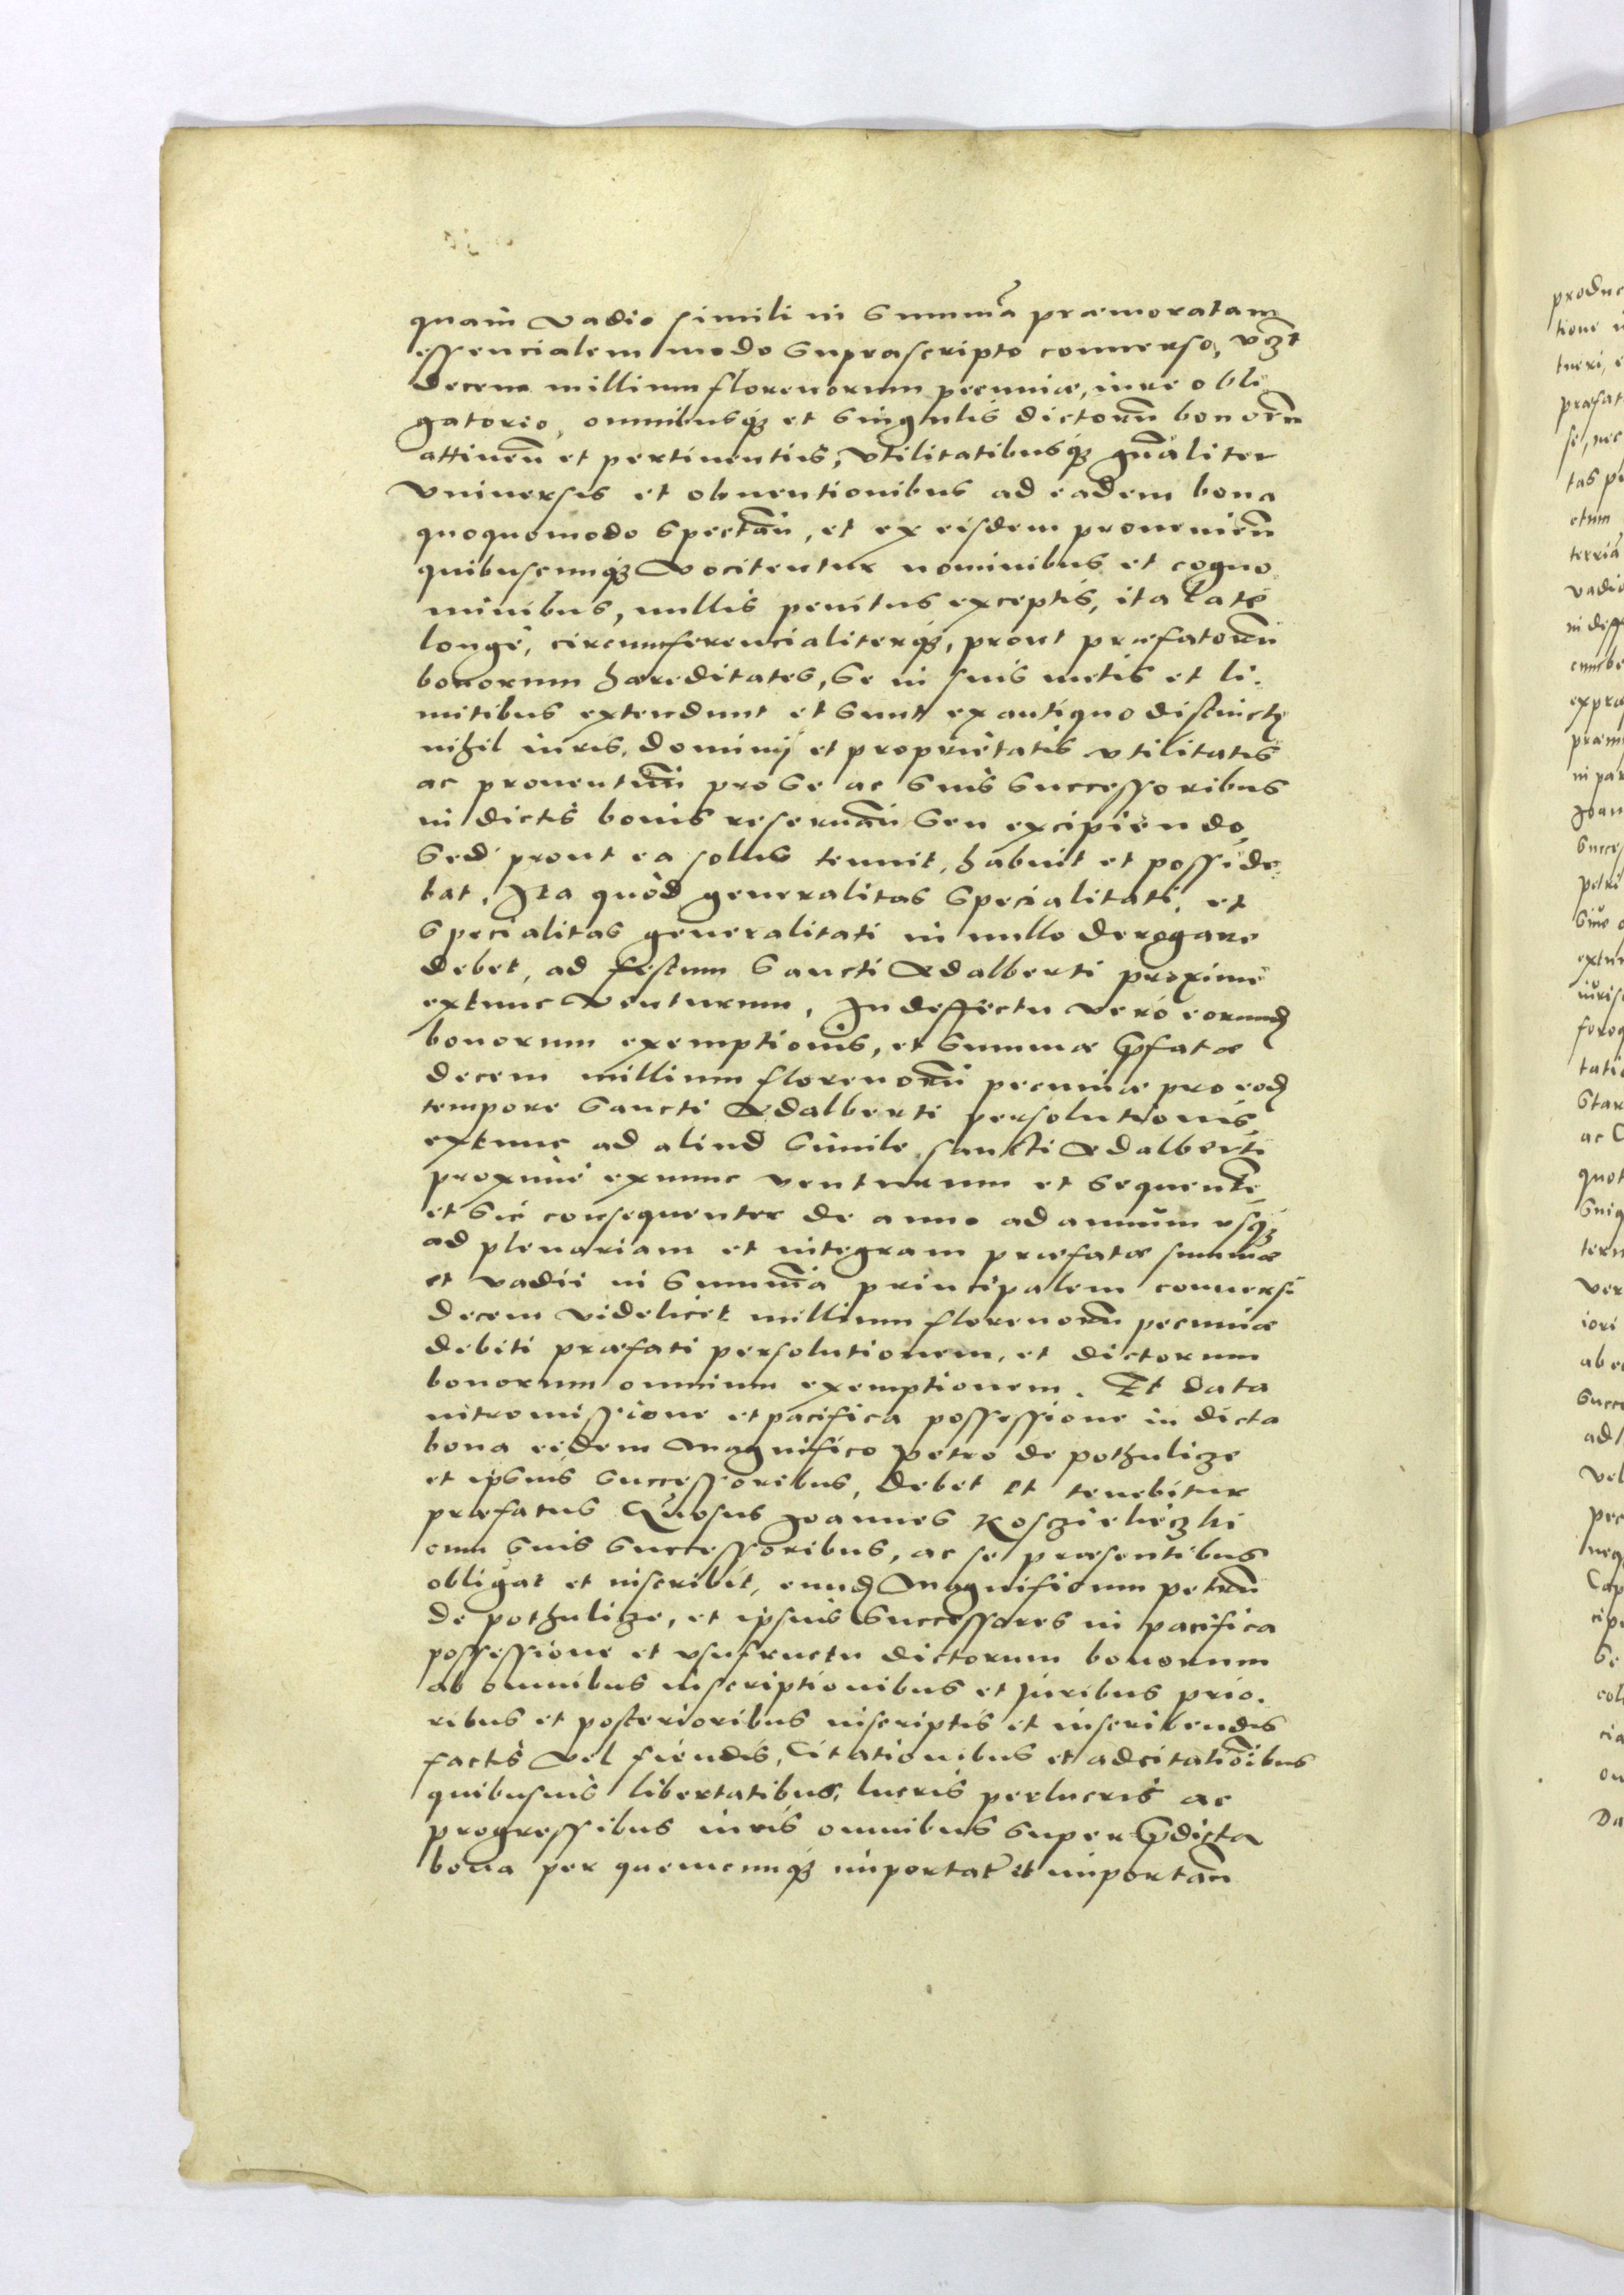 quam vadio simili in summã præmoratam
essencialem modo suprascripto conuerso, vꝫt
decem millium florenorum pecuniæ, iure obli
gatorio, omnibusqꝫ et singulis dictorũ bonorũ
attineñ et pertinentiis, vtilitatibusqꝫ gñaliter
vniuersis et obuentionibus ad eadem bona
quoquomodo spectañ, et ex eisdem prouenieñ
quibuscunqꝫ vocitentur nominibus et cogno
minibus, nullis penitus exceptis, ita latè
longè, circumferencialiterqꝫ, prout præfatorũ
bonorum hæreditates, se in suis metis et li.
mitibus extendunt et sunt ex antiquo distinctę
nihil iuris, dominij et proprietatis vtilitatis
ac prouentuũ pro se ac suis successoribus
in dictis bonis reseruañ seu excipiendo,
sed prout ea solus tenuit, habuit et posside
bat, Ita quòd generalitas specialitati, et
specialitas generalitati in nullo derogare
debet, ad festum Sancti Adalberti proximè
extunc venturum, In deffectu verò eorund
bonorum exemptionis, et summæ p̃fatæ
decem millium florenorũ pecuniæ pro eod
tempore Sancti Adalberti persolutionis,
extunc ad aliud simile sancti Adalberti
proximè exnunc venturum et sequenteᷓ,
et sic consequenter de anno ad annum vsqꝫ
ad plenariam et integram præfatæ summæ
et vadii in summã principalem conuersi
decem videlicet millium florenorũ pecuniæ
debiti præfati persolutionem, et dictorum
bonorum omnium exemptionem. Et data
intromissione et pacifica possessione in dicta
bona eidem Magnifico Petro de Pothulicze
et ipsius successoribus, debet et tenebitur
præfatus Gñosus Joannes Kosczielieczki
cum suis successoribus, ac se præsentibus
obligat et inscribit, eund Magnificum Petrũ
de Pothulicze, et ipsius successores in pacifica
possessione et vsufructu dictorum bonorum
ab omnibus inscriptionibus et iuribus prio.
ribus et posterioribus inscriptis et inscribendis
factis vel fiendis, Citationibus et adcitatiõibus
quibusuis libertatibus, lucris perlucris ac
progressibus iuris omnibus super p̃dicta
bona per quemcunqꝫ importat̃ et importañ